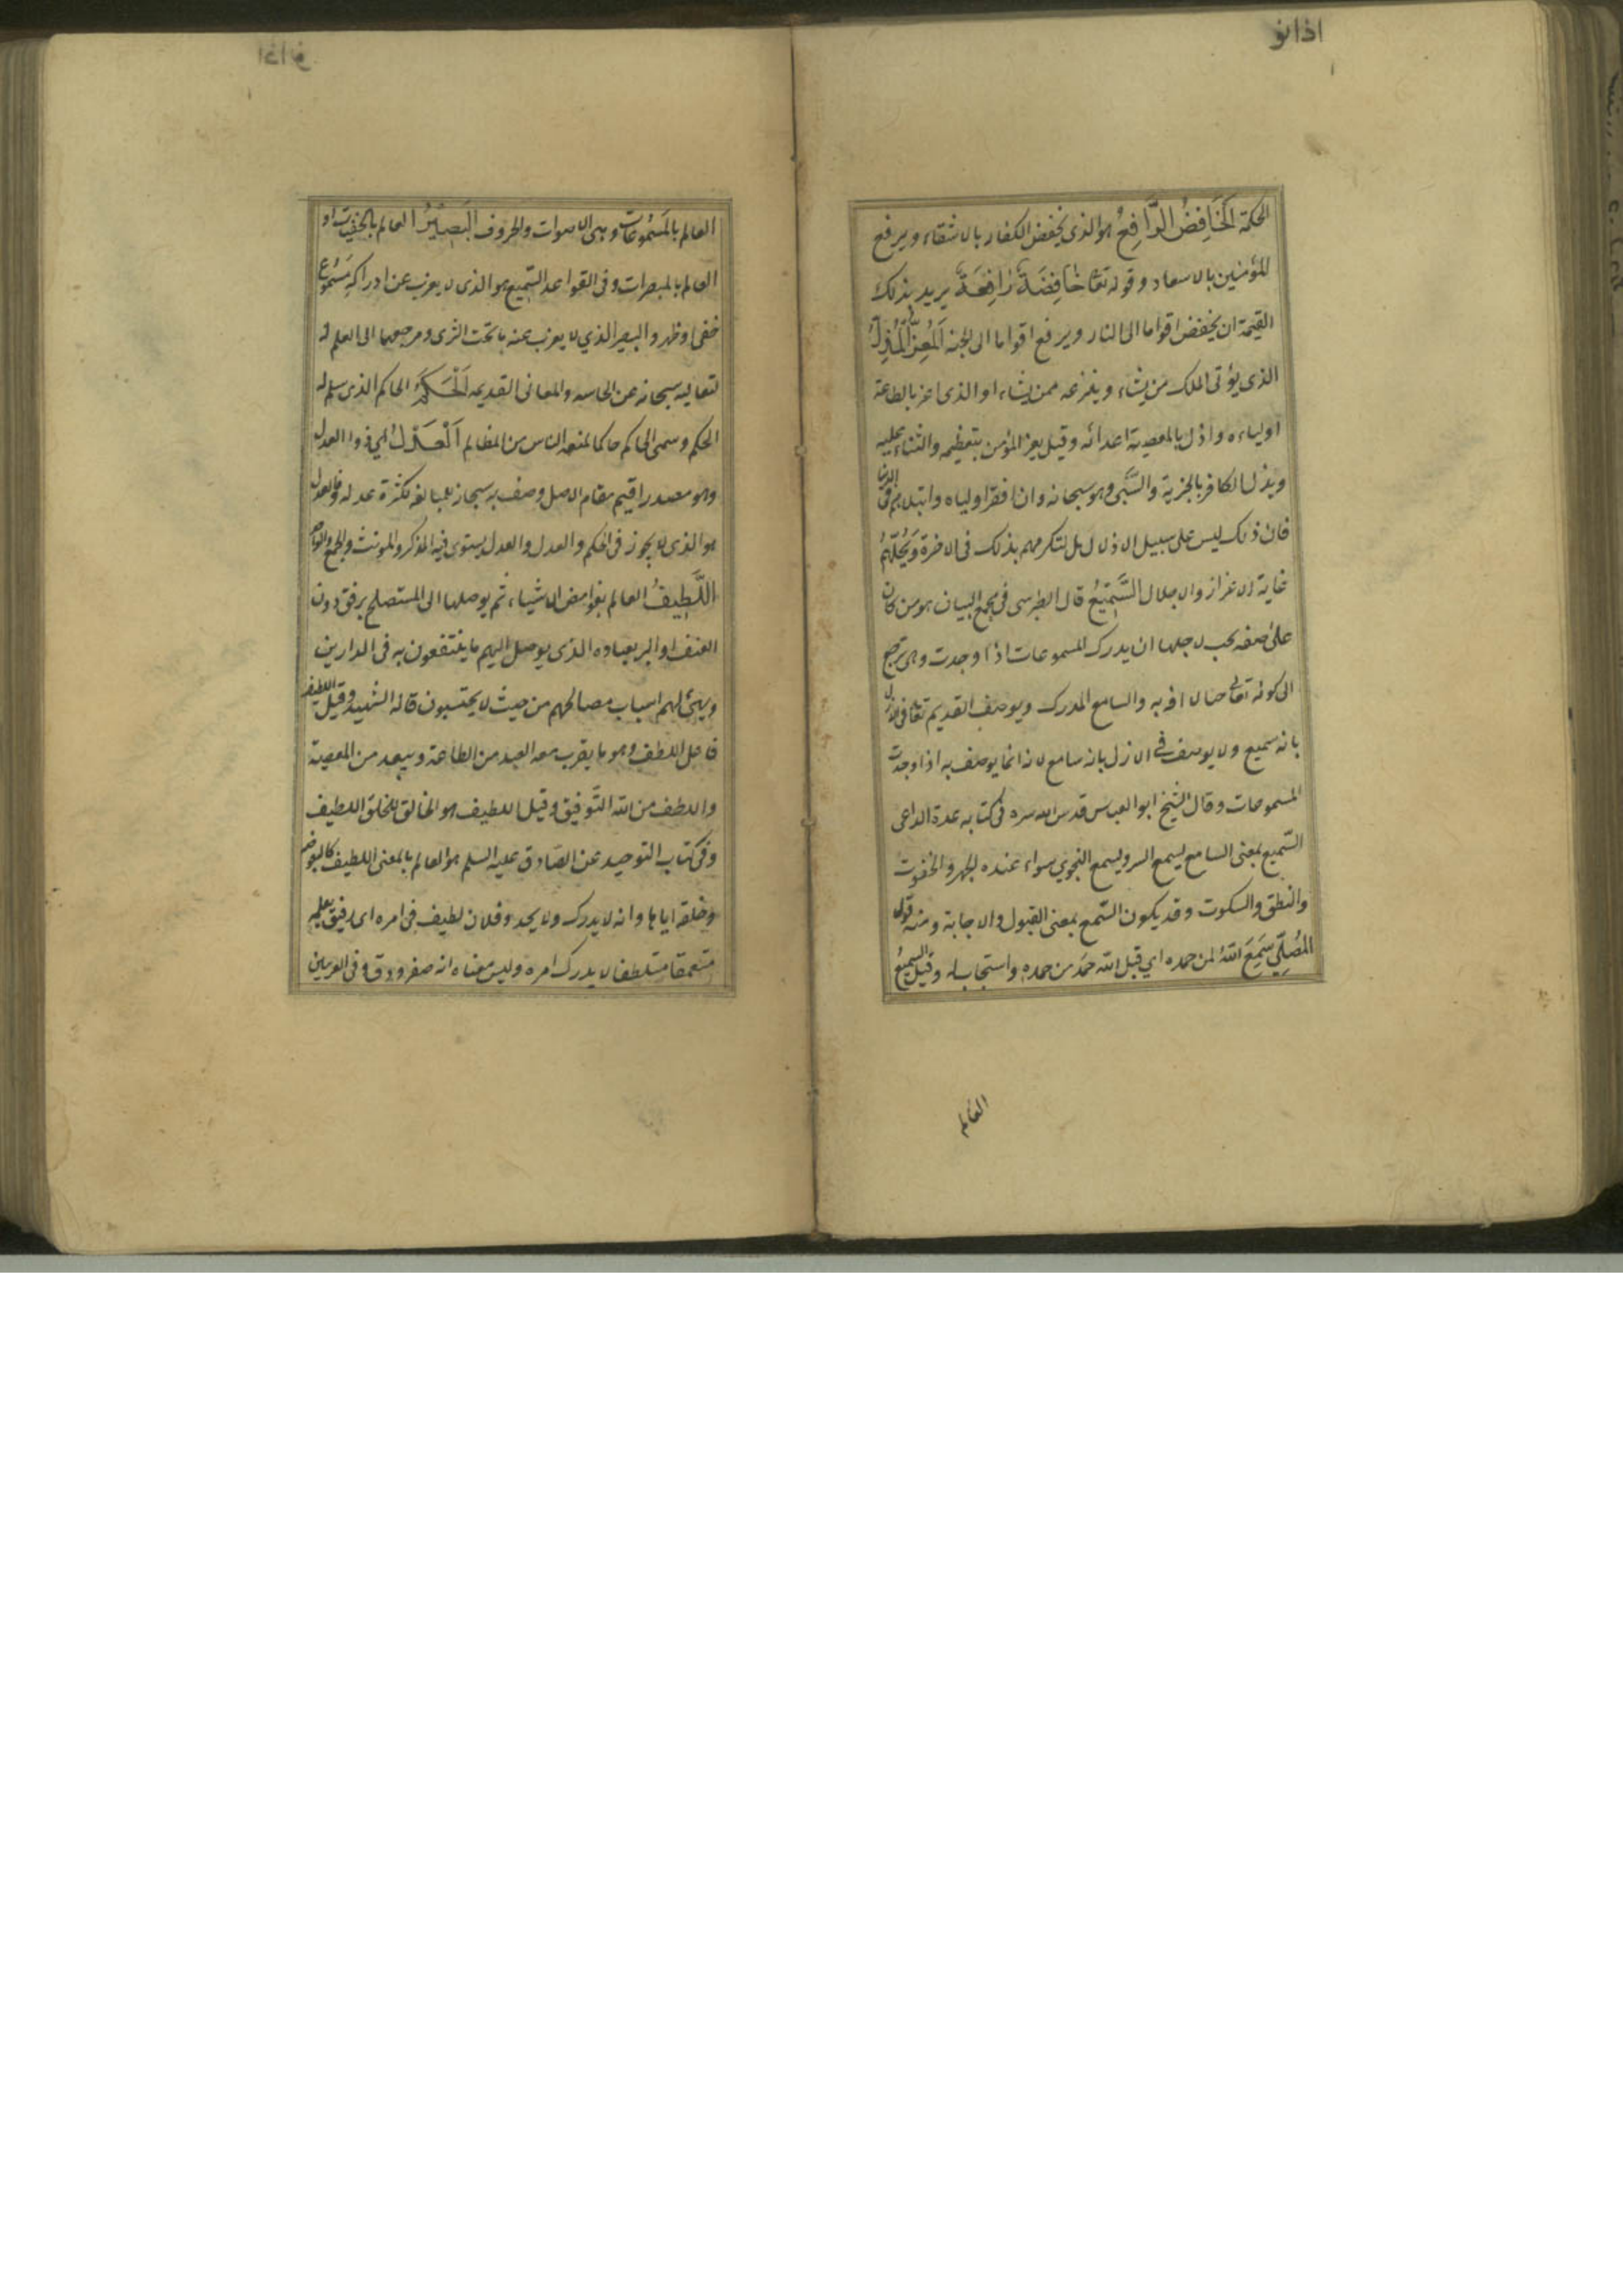 اذانو
الحكمة اَلْخَافِضُ الرَّافِعُ هو الذى يخفض الكفار بالاشقاء ويرفع
المؤمنين بالاسعاد وقوله تعا خَافِضَةٌ رَافِعَةٌ يريد بذلك
القيمة ان يخفض اقواما الى النار ويرفع اقواما الى الجنه اَلْمُعِزُّ الْمُذِلُّ
الذى يؤتى الملك من يشاء وينزعه ممن يشاء او الذى اعز بالطاعة
اولياءه واذل بالمعصية اعدائه وقيل يعز المؤمن بتعظيمه والثناء عليه
ويذل الكافر بالجزية والسَّبى وهو سبحانه وان افقر اولياه وابتلاهم فى الدنيا
فان ذلك ليس على سبيل الاذلال بل لتكرمهم بذلك فى الاخرة ويُحِلّهُمْ
غاية الاعزاز والاجلال السَّمِيْعُ قال الطبرسى فى مجمع البيان هو من كان
على صفه يجب لاجلها ان يدرك المسموعات اذا وجدت وهى ترجع
الى كونه تعالى حيا لا افة به والسامع المدرك ويوصف القديم تعا فى الازل
بانه سميع ولا يوصف فى الازل بانه سامع لانه انما يوصف به اذا وجدت
المسموعات وقال الشيخ ابو العباس قدس الله سره فى كتابه عدة الداعى
السَّميع بمعنى السامع يسمع السر ويسمع النجوى سواء عنده الجهر والخفوت
والنطق والسكوت وقد يكون السَّمع بمعنى القبول والاجابة ومنه قول
المُصَلِّي سَمِعَ اللهُ لمن حمده اي قبل الله حمد من حمده واستجاب له وقيل السميعُ
العالم
العالم بالمَسْمُوعَات وهى الاصوات والحروف اَلْبَصِيْرُ العالم بالخفيات او
العالم بالمبصرات وفى القواعد السَّميع هو الذى لا يعزب عن ادراكه مَسْمُوع
خفى او ظهر والبصير الذي لا يعزب عنه ما تحت الثرى ومرجعهما الى العلم
لتعاليه سبحانه عن الحاسه والمعانى القديمه اَلْحَكَمُ الحاكم الذى سلم له
الحكم وسمى الحاكم حاكما لمنعه الناس من المظالم اَلْعَدْلُ اي ذوا العدل
وهو مصدر اقيم مقام الاصل وصف به سبحانه للمبالغه لكثرة عدله والعدل
هو الذى لا يجوز فى الحكم والعدل والعدل يستوى فيه المذكر والمؤنث والجمع والواحد
اللَّطِيفُ العالم بغوامض الاشياء ثم يوصلها الى المستصلح برفق دون
العنف او البر بعباده الذى يوصل اليهم ما ينتفعون به فى الدارين
ويهيئ لهم اسباب مصالحهم من حيث لا يحتسبون قاله الشهيد وقيل اللطيف
فاعل اللطف وهو ما يقرب معه العبد من الطاعة ويبعد من المعصية
واللطف من الله التَّوفيق وقيل اللطيف هو الخالق للخلق اللطيف
وفى كتاب التوحيد عن الصَّادق عليه السلم هو العالم بالمعنى اللطيف كالبعوض
وخلقه اياها وانه لا يدرك ولا يحد وفلان لطيف فى امره اى رفيق بعلمه
متعمقا متلطفا لا يدرك امره وليس معناه انه صغر ودق وفى الغريبين